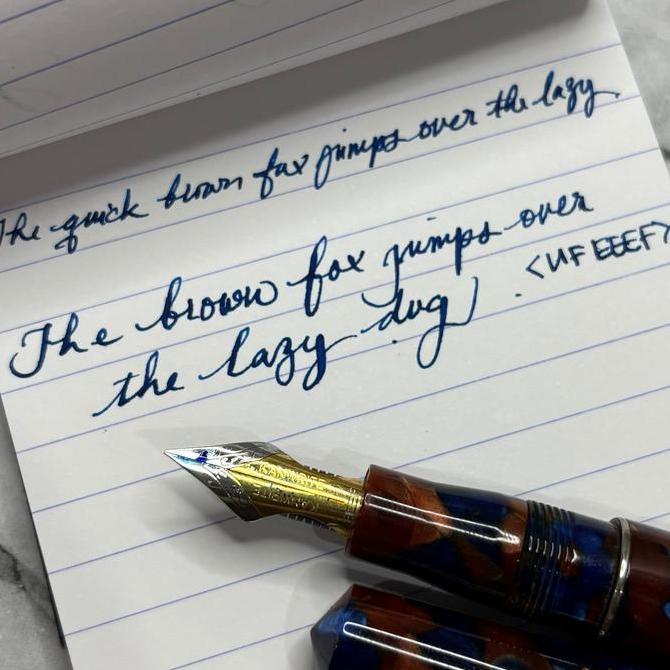 The quick brown fox jumps over the lazy
The brown fox jumps over
the lazy dog.
<UF EEEF>